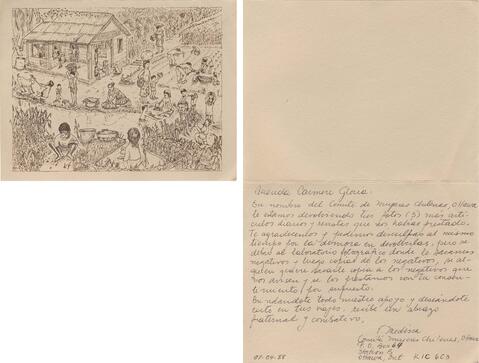 Querida Carmen Gloria:
En nombre del Comité de Mujeres Chilenas, Ottawa
te estamos devolviendo tres fotos (3) más artí-
culos diarios y revistas que nos habías prestado.
Te agradecemos y pedimos disculpas al mismo
tiempo por la demora en devolverlas, pero se
debió al laboratorio fotográfico donde le sacamos
negativos y luego copias de los negativos, si al-
guien quiere sacarle copia a los negativos que
nos avisen y se los prestamos con la consen-
timiento por supuesto.
Brindándote todo nuestro apoyo y deseándote
éxito en tus viajes, recibe un abrazo
fraternal y combativo,
Comité Mujeres Chilenas, Ottawa
P.O. Box 64
Station B
Ottawa, Ont K1C 6C3
07-04-88